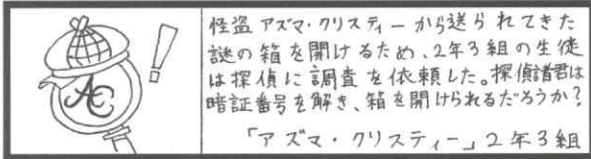 AC
!
怪盗アズマ・クリスティーから送られてきた
謎の箱を開けるため、2年3組の生徒
は探偵に調査を依頼した。探偵諸君は
暗証番号を解き、箱を開けられるだろうか?
「アズマ・クリスティー」2年3組